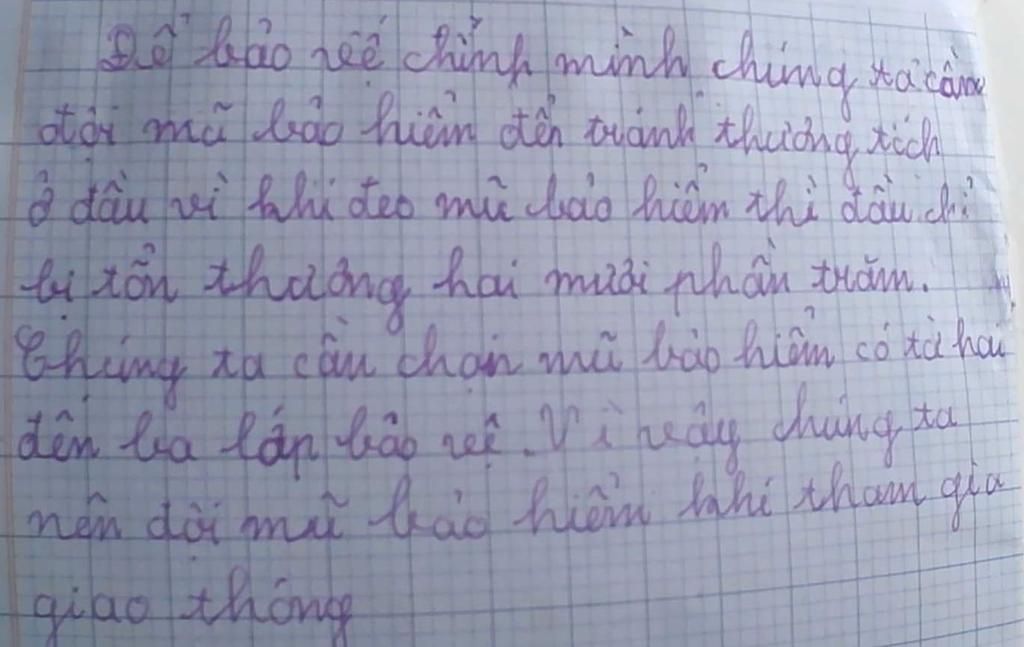 Để bảo vệ chính mình chúng ta cần
đội mũ bảo hiểm đến tránh thương tích
ở đầu vì khi đeo mũ bảo hiểm thì đầu chỉ
bị tổn thương hai mươi phần trăm.
Chúng ta cần chọn mũ bảo hiểm có từ hai
đến ba lớp bảo vệ. Vì vậy chúng ta
nên đội mũ bảo hiểm khi tham gia
giao thông